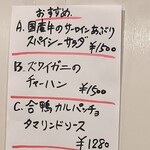 おすすめ
A. 国産牛のサーロインあぶり
スパイシーサラダ
¥1500
B. ズワイガニの
チャーハン
¥1500
C. 合鴨カルパッチョ
タマリンドソース
¥1280